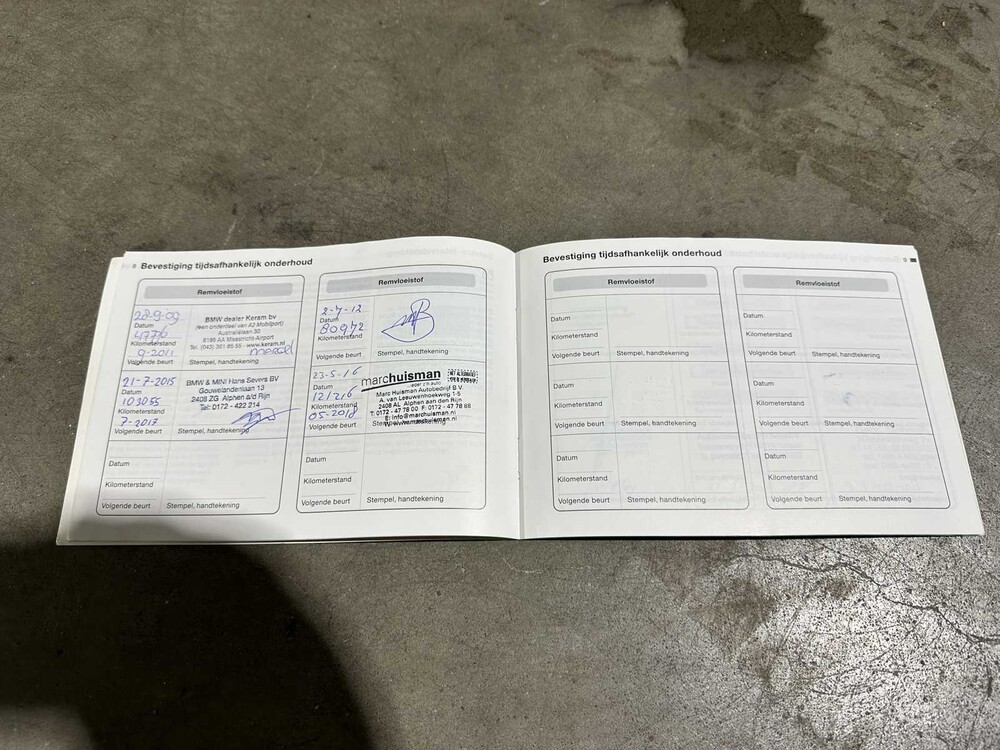 8 Bevestiging tijdsafhankelijk onderhoud
Remvloeistof
28-9-09
Datum
47776
Kilometerstand
9-2011
Volgende beurt
BMW dealer Keram bv
(een onderdeel van A2 Mobilport)
Australiëlaan 30
6199 AA Maastricht-Airport
Tel. (043) 361 65 55 - www.keram.nl
Stempel, handtekening
21-7-2015
Datum
103055
Kilometerstand
7-2017
Volgende beurt
BMW & MINI Hans Severs BV
Gouwelandenlaan 13
2408 ZG Alphen a/d Rijn
Tel: 0172 - 422 214
Stempel, handtekening
Datum
Kilometerstand
Volgende beurt
Stempel, handtekening
Remvloeistof
2-7-12
Datum
80972
Kilometerstand
Volgende beurt
Stempel, handtekening
23-5-16
Datum
121216
Kilometerstand
05-2018
Volgende beurt
marchuisman
Marc Huisman Autobedrijf B.V.
A. van Leeuwenhoekweg 1-5
2408 AL Alphen aan den Rijn
T: 0172 - 47 78 00 F: 0172 - 47 78 88
E: info@marchuisman.nl
W: www.marchuisman.nl
Datum
Kilometerstand
Volgende beurt
Stempel, handtekening
Bevestiging tijdsafhankelijk onderhoud
9
Remvloeistof
Datum
Kilometerstand
Volgende beurt
Stempel, handtekening
Datum
Kilometerstand
Volgende beurt
Stempel, handtekening
Datum
Kilometerstand
Volgende beurt
Stempel, handtekening
Remvloeistof
Datum
Kilometerstand
Volgende beurt
Stempel, handtekening
Datum
Kilometerstand
Volgende beurt
Stempel, handtekening
Datum
Kilometerstand
Volgende beurt
Stempel, handtekening